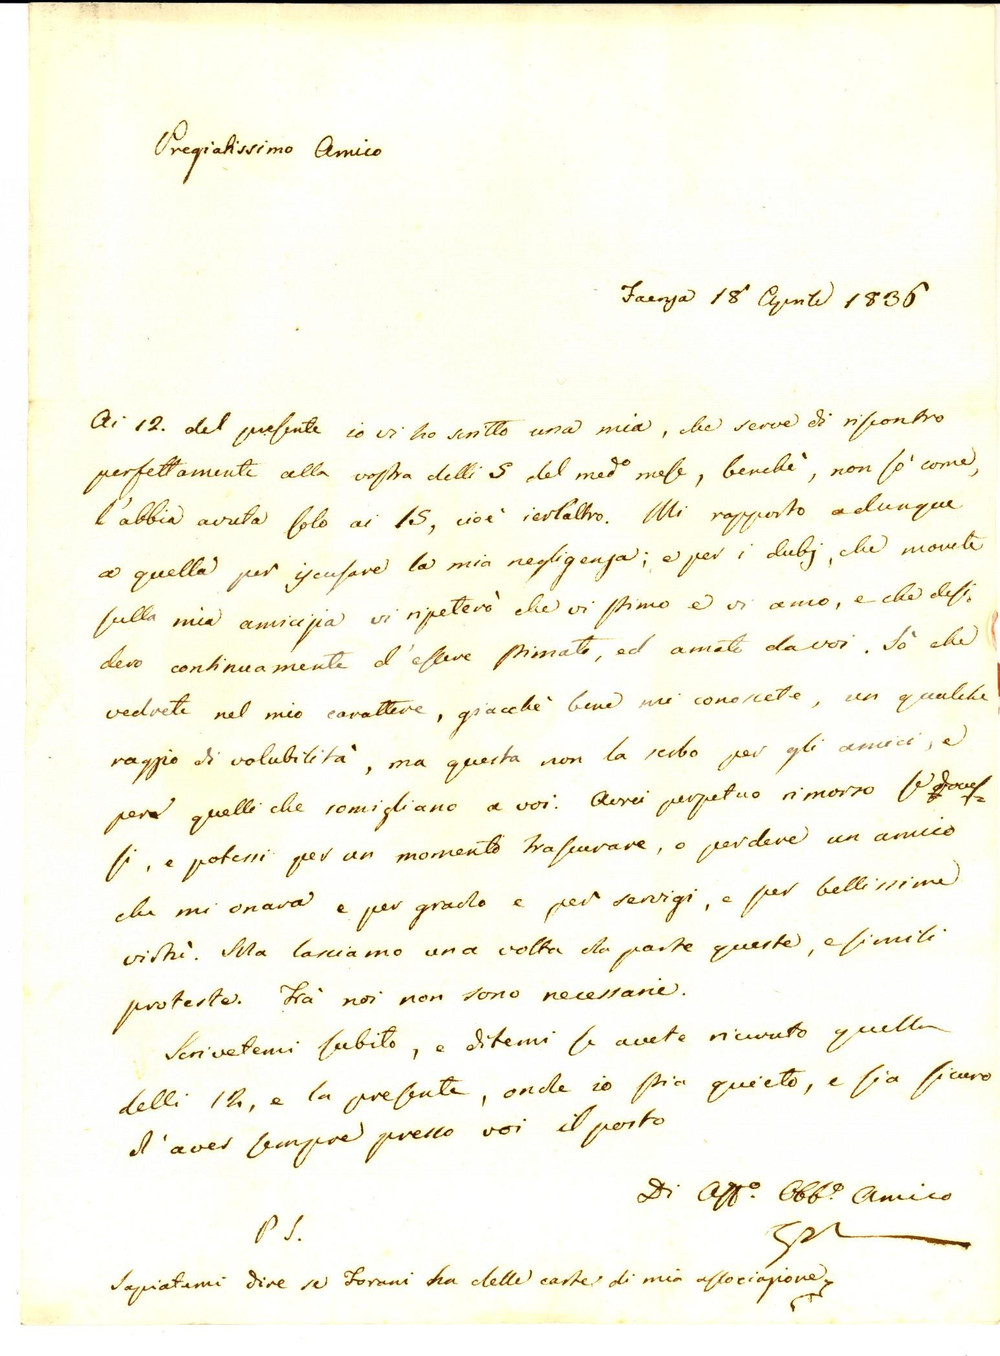 Pregiatissimo Amico
Faenza 18 Aprile 1836
Ai 12. del presente io vi ho scritto una mia, che serve di riscontro
perfettamente alla vostra delli 5 del med.o mese, benchè, non sò come,
l'abbia avuta solo ai 15, cioè ierlaltro. Mi rapporto adunque
a quella per iscusare la mia negligenza; e per i dubj, che movete
sulla mia amicizia vi ripeterò che vi stimo e vi amo, e che desi-
dero continuamente d'essere stimato, ed amato da voi. Sò che
vedrete nel mio carattere, giacchè bene mi conoscete, un qualche
raggio di volubilità, ma questa non la serbo per gli amici, e
per quelli che somigliano a voi. Avrei perpetuo rimorso se doves-
si, e potessi per un momento trascurare, o perdere un amico
che mi onora e per grado e per servigi, e per bellissime
virtù. Ma lasciamo una volta da parte queste, e simili
proteste. Frà noi non sono necessarie.
Scrivetemi subito, e ditemi se avete ricevuto quella
delli 12, e la presente, onde io stia quieto, e sia sicuro
d'aver sempre presso voi il posto
Di Aff.o Obb.o Amico
P S.
Sapiatemi dire se Forani ha delle carte di mia associazione